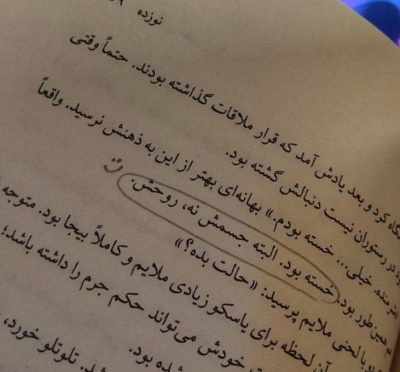 نوزده
نگاه کرد و بعد یادش آمد که قرار ملاقات گذاشته بودند. حتماً وقتی
در رستوران نیست دنبالش گشته بود.
خیلی... خسته بودم.» بهانه‌ای بهتر از این به ذهنش نرسید. واقعاً
همین‌طور بود. خسته بود. البته جسمش نه، روحش.
با لحنی ملایم پرسید: «حالت بده؟»
آن لحظه برای یاسکو زیادی ملایم و کاملاً بیجا بود. متوجه
خودش می‌تواند حکم جرم را داشته باشد؛
شده بود.
تلوتلو خورد،